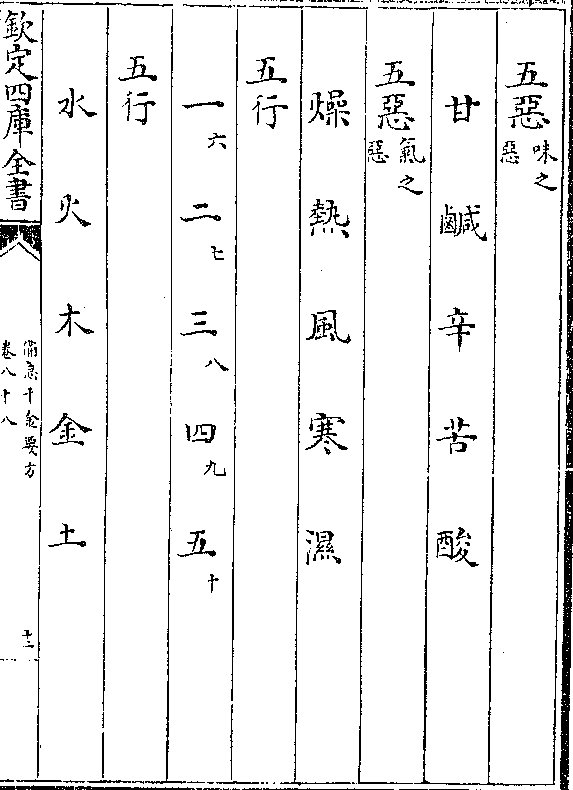 五惡味之惡
甘鹹辛苦酸
五惡氣之惡
燥熱風寒濕
五行
一六二七三八四九五十
五行
水火木金土
欽定四庫全書
備急千金要方
卷八十八
十二